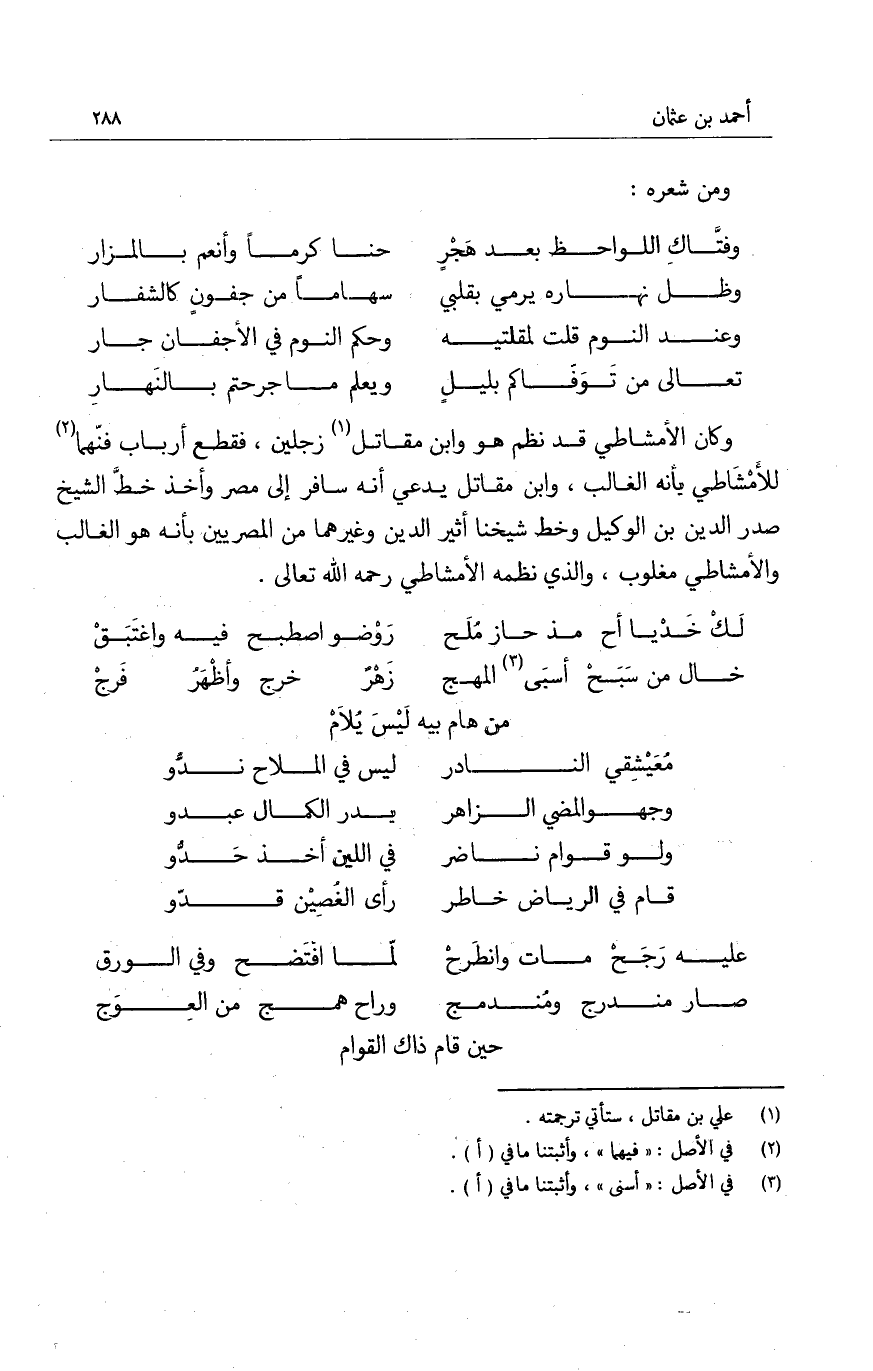 أحمد بن عثمان ٢٨٨
ومن شعره :
وفتَّاكِ اللواحظ بعد هَجْرٍ حنا كرماً وأنعم بالمزار
وظل نهاره يرمي بقلبي سهاماً من جفونٍ كالشفار
وعند النوم قلت لمقلتيه وحكم النوم في الأجفان جار
تعالى من تَوَفَّاكم بليلٍ ويعلم ما جرحتم بالنَهارِ
وكان الأمشاطي قد نظم هو وابن مقاتل(١) زجلين ، فقطع أرباب فنّها(٢)
للأَمْشَاطي بأنه الغالب ، وابن مقاتل يدعي أنه سافر إلى مصر وأخذ خطَّ الشيخ
صدر الدين بن الوكيل وخط شيخنا أثير الدين وغيرهما من المصريين بأنه هو الغالب
والأمشاطي مغلوب ، والذي نظمه الأمشاطي رحمه الله تعالى .
لَكْ خَدْ يا أح مذ حاز مُلَح رَوْضو اصطبح فيه واغتَبَقْ
خال من سَبَحْ أسبَى(٣) المهج زَهْرٌ خرج وأظْهَرُ فَرجْ
من هام بيه لَيْسَ يُلاَمْ
مُعَيْشِقي النادر ليس في الملاح ندُّو
وجهو المضي الزاهر بدر الكمال عبدو
ولو قوام ناضر في اللين أخذ حَدُّو
قام في الرياض خاطر رأى الغُصِيْن قدّو
عليه رَجَحْ مات وانطَرحْ لمّا افْتَضح وفي الورق
صار مندرج ومُندمج وراح همج من العوَج
حين قام ذاك القوام
(١) علي بن مقاتل ، ستأتي ترجمته .
(٢) في الأصل : « فيها » ، وأثبتنا ما في ( أ ) .
(٣) في الأصل : « أسنى » ، وأثبتنا ما في ( أ ) .